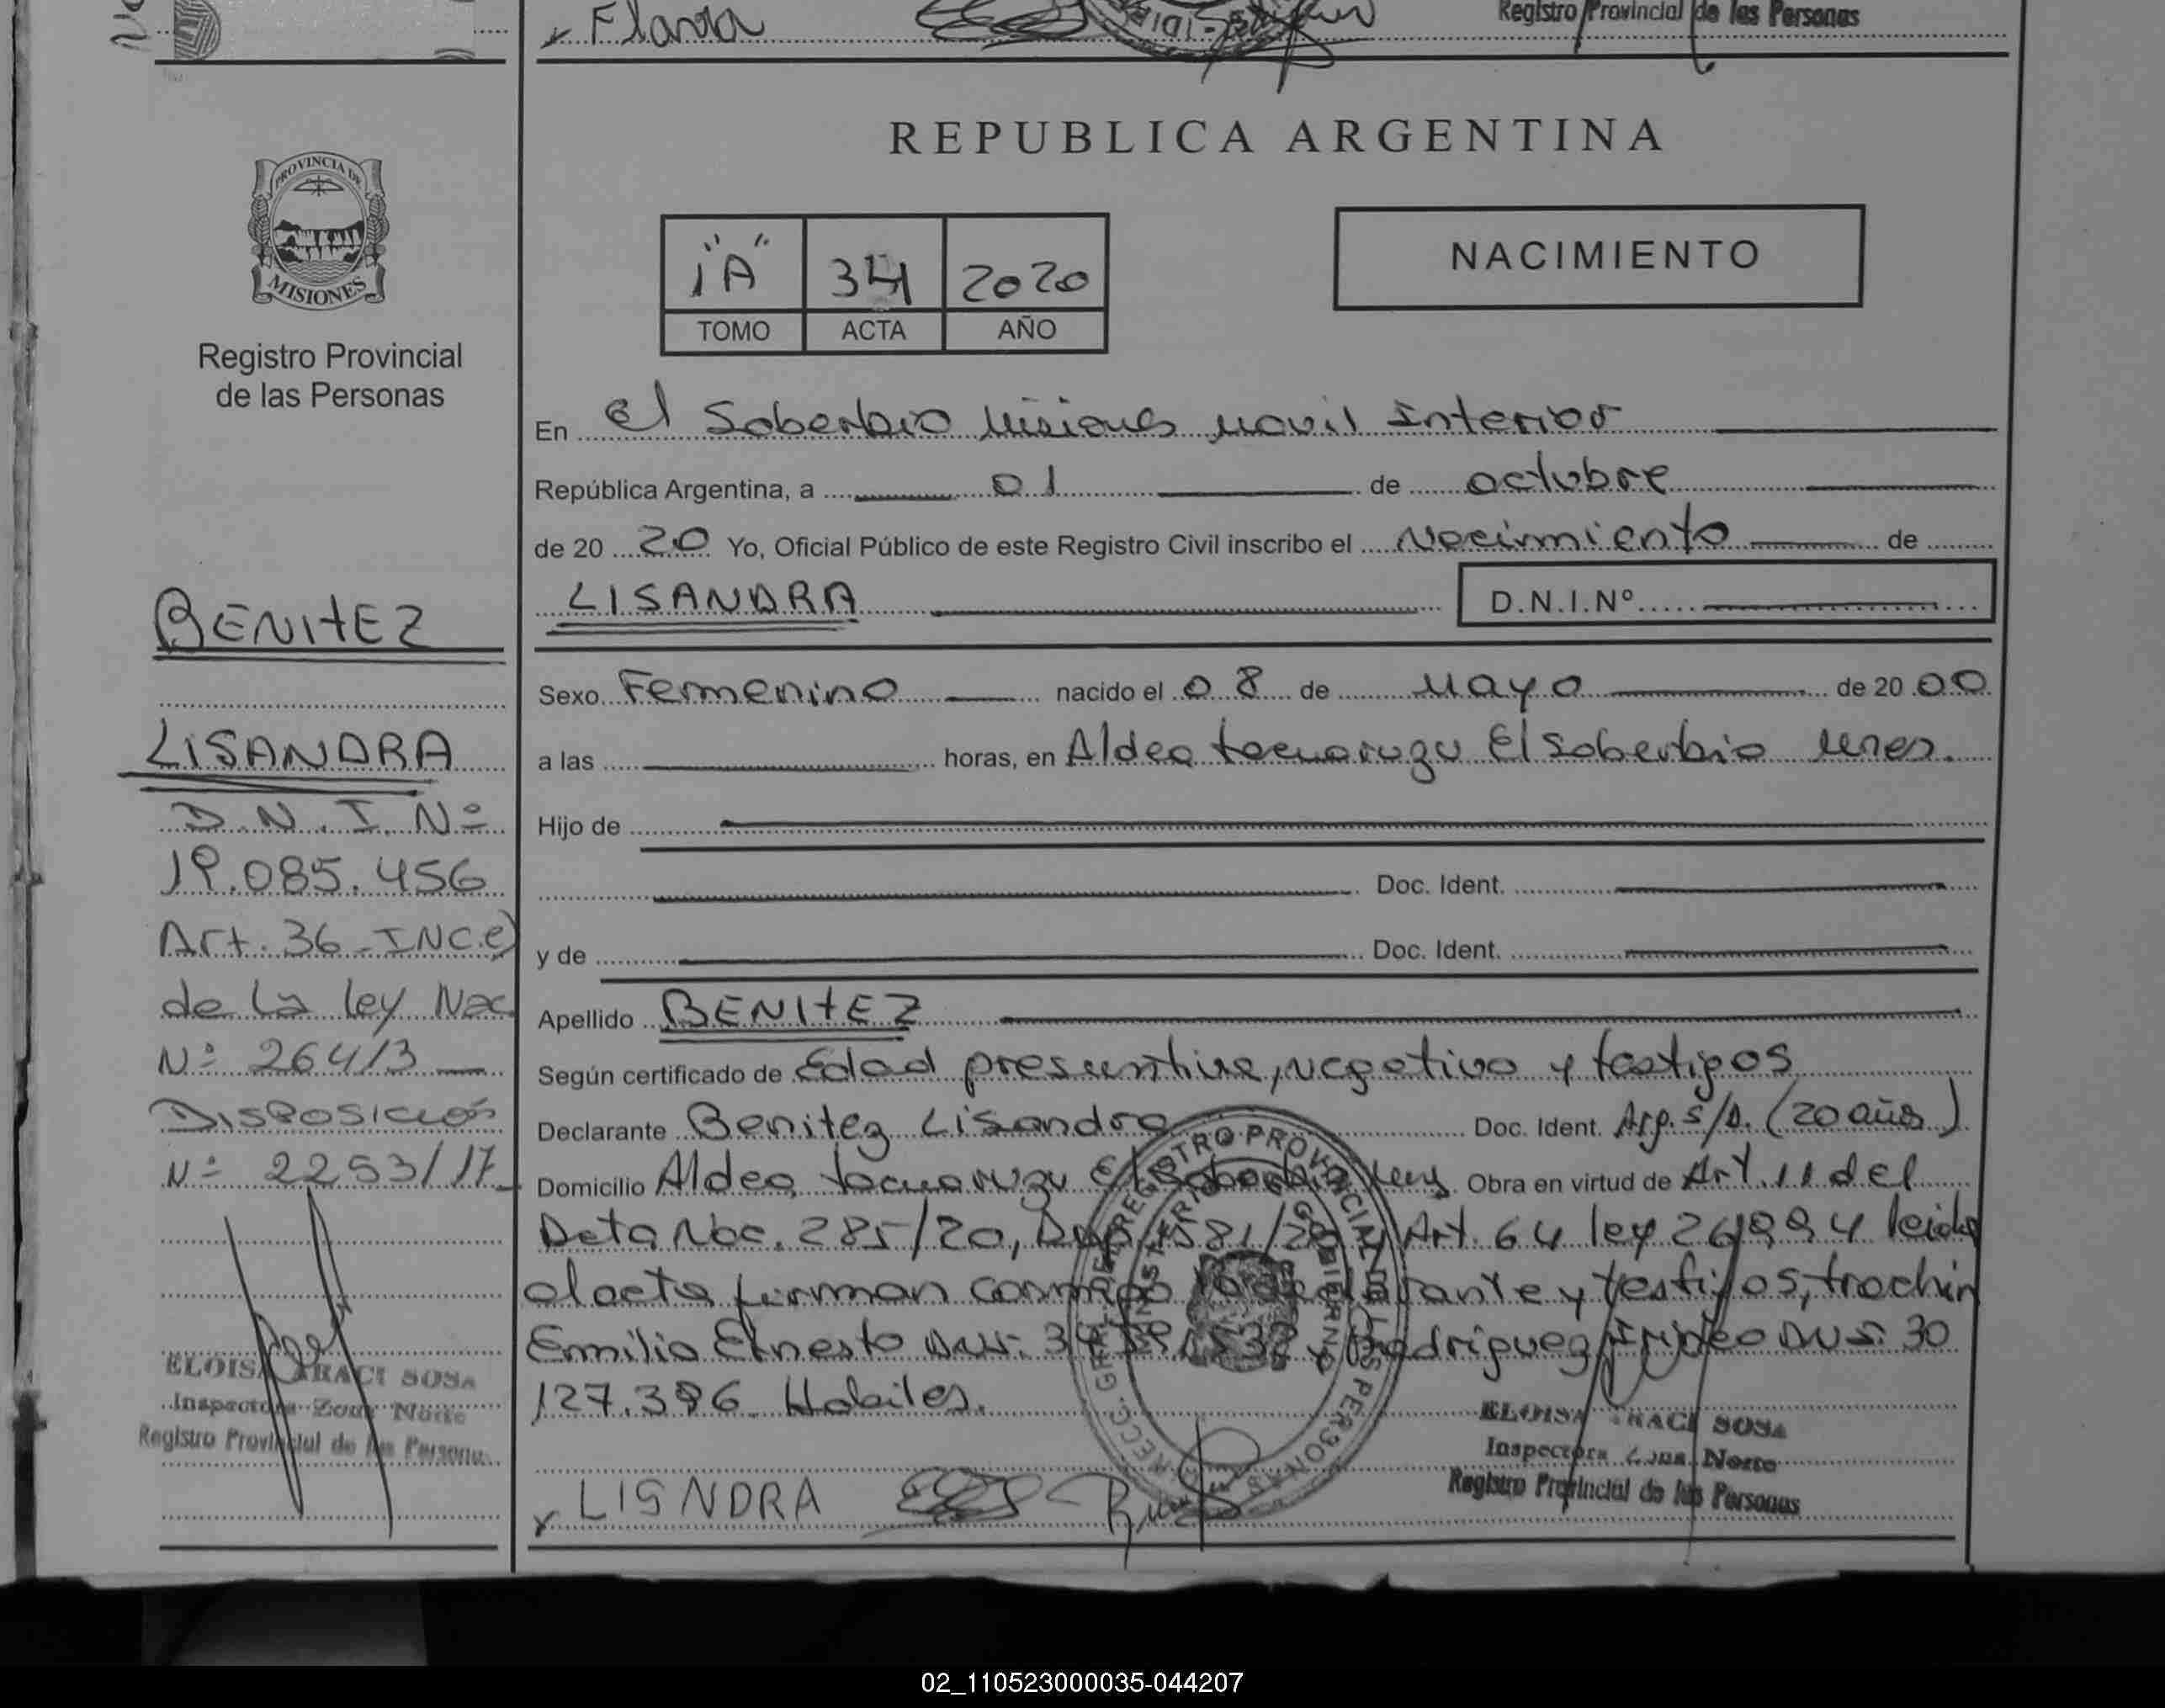 Flavia
Registro Provincial de las Personas
REPUBLICA ARGENTINA
PROVINCIA DE
MISIONES
Registro Provincial
de las Personas
"A" 341 2020
TOMO ACTA AÑO
NACIMIENTO
En El Soberbio Misiones movil Interior
República Argentina, a 01 de octubre
de 20 20 Yo, Oficial Público de este Registro Civil inscribo el Nacimiento de
LISANDRA D.N.I.Nº
Sexo Femenino nacido el 08 de Mayo de 20 00
a las horas, en Aldea tacuaruzu El Soberbio Mnes.
Hijo de
Doc. Ident.
y de Doc. Ident.
Apellido BENITEZ
Según certificado de Edad presuntiva, negativo y testigos
Declarante Benitez Lisandra Doc. Ident. Arg. S/D. (20 años)
Domicilio Aldea tacuaruzu El Soberbio Obra en virtud de Art. 11 del
Nac. 285/20, 1581/20 Art. 64 ley 26994 leida
el acta firman conmigo y testigos, trochin
Emilio Ernesto y Rodriguez 30
127.396 Habiles.
LISNDRA
ELOISA IRACI SOSA
Inspectora Zona Norte
Registro Provincial de las Personas
BENITEZ
LISANDRA
D.N.I. Nº
19.085.456
Art. 36 - INC. e)
de la ley Nac
Nº 26413
DISPOSICIÓN
Nº 2253/17
ELOISA IRACI SOSA
Inspectora Zona Norte
Registro Provincial de las Personas
REGISTRO PROVINCIAL DE LAS PERSONAS
02_110523000035-044207